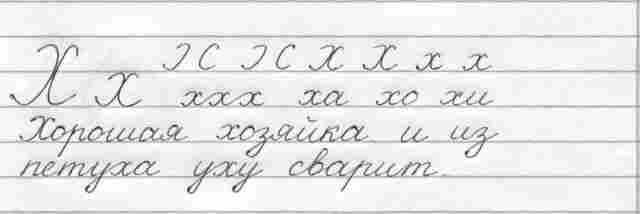 Э С Э С Х Х х х
Х х ххх ха хо хи
Хорошая хозяйка и из
петуха уху сварит.